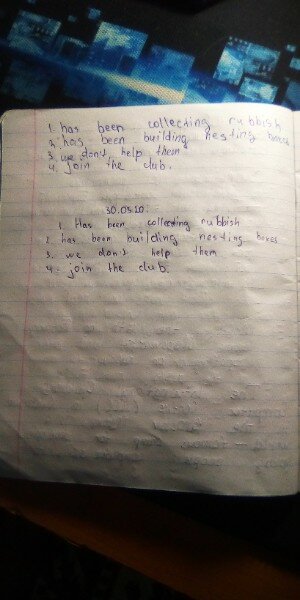 1. has been collecting rubbish
2. has been building nesting boxes
3. we don't help them
4. join the club.
30.05.10.
1. Has been collecting rubbish
2. has been building nesting boxes
3. we don't help them
4. join the club.